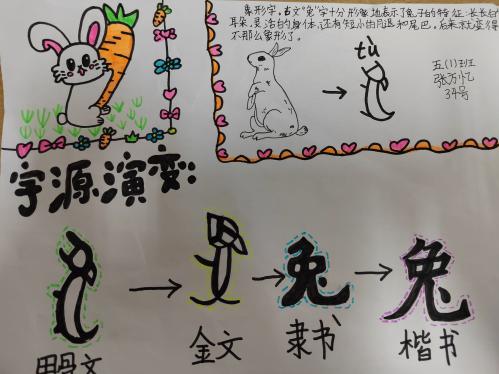 象形字,古文"兔"字十分形像地表示了兔子的特征:长长的
耳朵,灵活的身体,还有短小的四退和尾巴。后来就变得
不那么象形了。
tù
五(1)班
张万忆
34号
字源演变:
甲骨文
金文
隶书
楷书
兔
兔